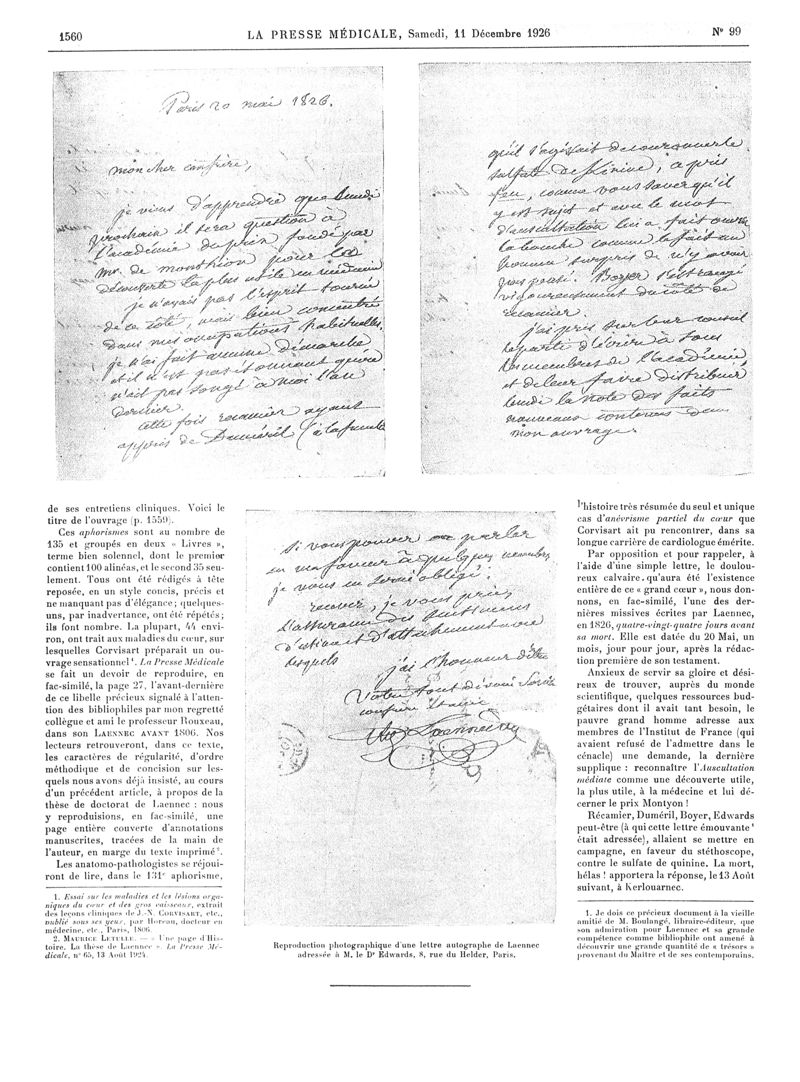 1560
LA PRESSE MÉDICALE, Samedi, 11 Décembre 1926
N° 99
Paris 20 mai 1826.
mon cher confrère,
je viens d'apprendre que lundi
prochain il sera question à
l'académie du prix fondé par
Mr. de monthion pour la
découverte la plus utile en médecine
je n'ayais pas l'esprit tourné
de ce côté, mais bien concentré
dans mes occupations habituelles.
je n'ai fait aucune démarche
et il n'est pas étonnant qu'on
n'ait pas songé à moi l'an
dernier.
cette fois recamier ayant
appris de Duméril (à la
qu'il s'agissait de couronner le
sulfate de kinine,
feu, comme vous savez qu'il
y est sujet et avec le mot
d'auscultation lui a fait ouvrir
la bouche comme le fait un
homme surpris de n'y avoir
pas pensé. Boyer s'est rangé
vigoureusement du côté de
recamier.
j'ai pris sur leur conseil
le parti d'écrire à tous
les membres de l'académie
et de leur faire distribuer
lundi la note des faits
nouveaux contenus dans
mon ouvrage.
de ses entretiens cliniques. Voici le
titre de l'ouvrage (p. 1559).
Ces aphorismes sont au nombre de
135 et groupés en deux « Livres »,
terme bien solennel, dont le premior
contient 100 alinéas, et le second 35 seu-
lement. Tous ont été rédigés à tête
reposée, en un style concis, précis et
ne manquant pas d'élégance; quelques-
uns, par inadvertance, ont été répétés;
ils font nombre. La plupart, 44 envi-
ron, ont trait aux maladies du cœur, sur
lesquelles Corvisart préparait un ou-
vrage sensationnel¹. La Presse Médicale
se fait un devoir de reproduire, en
fac-similé, la page 27, l'avant-dernière
de ce libelle précieux signalé à l'atten-
tion des bibliophiles par mon regretté
collègue et ami le professeur Rouxeau,
dans son LAENNEC AVANT 1806. Nos
lecteurs retrouveront, dans ce texte,
les caractères de régularité, d'ordre
méthodique et de concision sur les-
quels nous avons déjà insisté, au cours
d'un précédent article, à propos de la
thèse de doctorat de Laennec : nous
y reproduisions, en fac-similé, une
page entière couverte d'annotations
manuscrites, tracées de la main de
l'auteur, en marge du texte imprimé².
Les anatomo-pathologistes se réjoui-
ront de lire, dans le 131ᵉ aphorisme,
1. Essai sur les maladies et les lésions orga-
niques du cœur et des gros vaisseaux, extrait
des leçons cliniques de J.-N. CORVISART, etc.,
publié sous ses yeux, par Horeau, docteur en
médecine, etc., Paris, 1806.
2. MAURICE LETULLE. — « Une page d'His-
toire. La thèse de Laennec ». La Presse Mé-
dicale, n° 65, 13 Août 1924.
si vous pouvez en parler
en ma faveur à quelques membres
je vous en serai obligé.
recevez, je vous prie,
l'assurance des sentimens
d'estime et d'attachement avec
lesquels
j'ai l'honneur d'être
Votre tout dévoué
confrère
Laennec
Reproduction photographique d'une lettre autographe de Laennec
adressée à M. le Dʳ Edwards, 8, rue du Helder, Paris.
l'histoire très résumée du seul et unique
cas d'anévrisme partiel du cœur que
Corvisart ait pu rencontrer, dans sa
longue carrière de cardiologue émérite.
Par opposition et pour rappeler, à
l'aide d'une simple lettre, le doulou-
reux calvaire qu'aura été l'existence
entière de ce « grand cœur », nous don-
nons, en fac-similé, l'une des der-
nières missives écrites par Laennec,
en 1826, quatre-vingt-quatre jours avant
sa mort. Elle est datée du 20 Mai, un
mois, jour pour jour, après la rédac-
tion première de son testament.
Anxieux de servir sa gloire et dési-
reux de trouver, auprès du monde
scientifique, quelques ressources bud-
gétaires dont il avait tant besoin, le
pauvre grand homme adresse aux
membres de l'Institut de France (qui
avaient refusé de l'admettre dans le
cénacle) une demande, la dernière
supplique : reconnaître l'Auscultation
médiate comme une découverte utile,
la plus utile, à la médecine et lui dé-
cerner le prix Montyon !
Récamier, Duméril, Boyer, Edwards
peut-être (à qui cette lettre émouvante¹
était adressée), allaient se mettre en
campagne, en faveur du stéthoscope,
contre le sulfate de quinine. La mort,
hélas ! apportera la réponse, le 13 Août
suivant, à Kerlouarnec.
1. Je dois ce précieux document à la vieille
amitié de M. Boulangé, libraire-éditeur, que
son admiration pour Laennec et sa grande
compétence comme bibliophile ont amené à
découvrir une grande quantité de « trésors »
provenant du Maître et de ses contemporains.